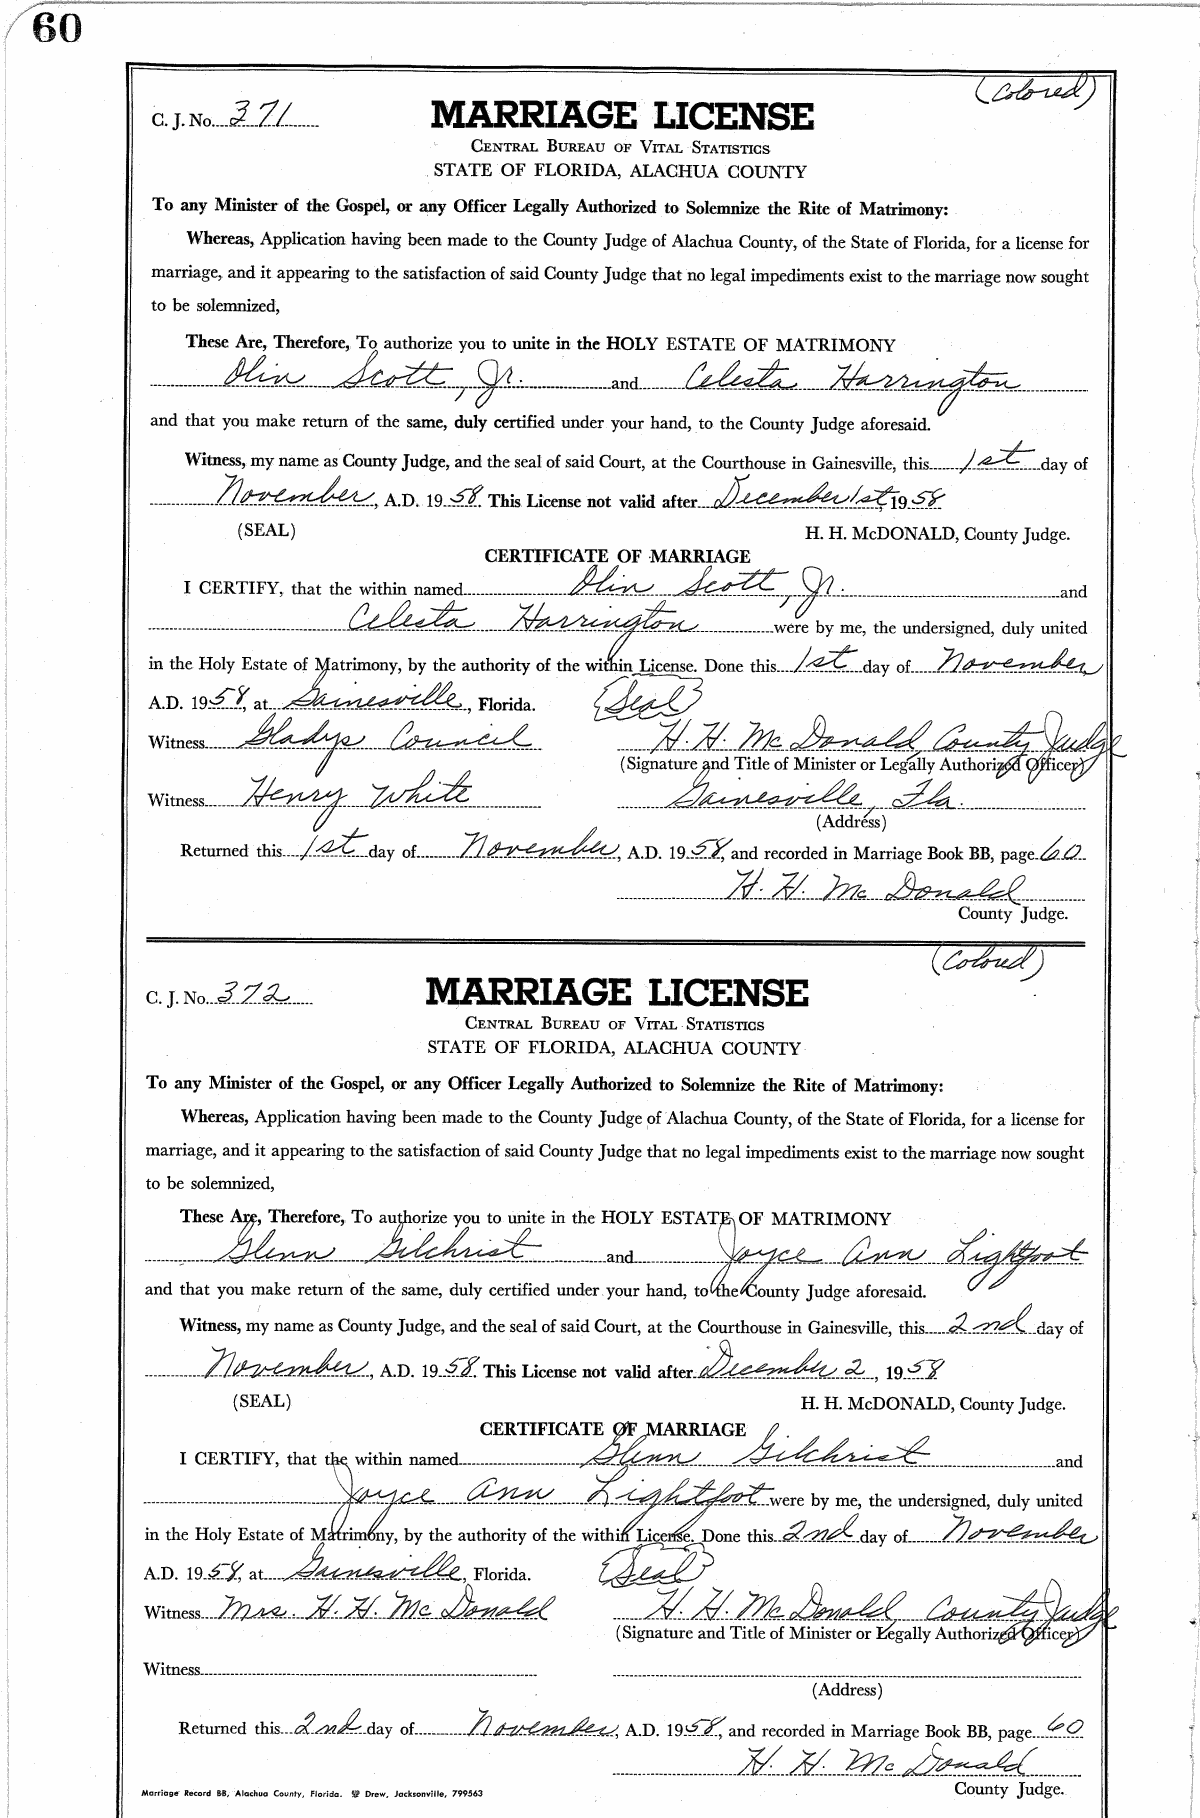 60
(Colored)
C. J. No. 371
MARRIAGE LICENSE
CENTRAL BUREAU OF VITAL STATISTICS
STATE OF FLORIDA, ALACHUA COUNTY
To any Minister of the Gospel, or any Officer Legally Authorized to Solemnize the Rite of Matrimony:
Whereas, Application having been made to the County Judge of Alachua County, of the State of Florida, for a license for
marriage, and it appearing to the satisfaction of said County Judge that no legal impediments exist to the marriage now sought
to be solemnized,
These Are, Therefore, To authorize you to unite in the HOLY ESTATE OF MATRIMONY
Olin Scott, Jr. and Celesta Harrington
and that you make return of the same, duly certified under your hand, to the County Judge aforesaid.
Witness, my name as County Judge, and the seal of said Court, at the Courthouse in Gainesville, this 1st day of
November, A.D. 1958. This License not valid after December 1st, 1958
(SEAL) H. H. McDONALD, County Judge.
CERTIFICATE OF MARRIAGE
I CERTIFY, that the within named Olin Scott, Jr. and
Celesta Harrington were by me, the undersigned, duly united
in the Holy Estate of Matrimony, by the authority of the within License. Done this 1st day of November,
A.D. 1958, at Gainesville, Florida. (Seal)
Witness Gladys Council H. H. McDonald, County Judge
(Signature and Title of Minister or Legally Authorized Officer)
Witness Henry White Gainesville, Fla.
(Address)
Returned this 1st day of November, A.D. 1958, and recorded in Marriage Book BB, page 60
H. H. McDonald
County Judge.
(Colored)
C. J. No. 372
MARRIAGE LICENSE
CENTRAL BUREAU OF VITAL STATISTICS
STATE OF FLORIDA, ALACHUA COUNTY
To any Minister of the Gospel, or any Officer Legally Authorized to Solemnize the Rite of Matrimony:
Whereas, Application having been made to the County Judge of Alachua County, of the State of Florida, for a license for
marriage, and it appearing to the satisfaction of said County Judge that no legal impediments exist to the marriage now sought
to be solemnized,
These Are, Therefore, To authorize you to unite in the HOLY ESTATE OF MATRIMONY
Glenn Gilchrist and Joyce Ann Lightfoot
and that you make return of the same, duly certified under your hand, to the County Judge aforesaid.
Witness, my name as County Judge, and the seal of said Court, at the Courthouse in Gainesville, this 2nd day of
November, A.D. 1958. This License not valid after December 2, 1958
(SEAL) H. H. McDONALD, County Judge.
CERTIFICATE OF MARRIAGE
I CERTIFY, that the within named Glenn Gilchrist and
Joyce Ann Lightfoot were by me, the undersigned, duly united
in the Holy Estate of Matrimony, by the authority of the within License. Done this 2nd day of November
A.D. 1958, at Gainesville, Florida. (Seal)
Witness Mrs. H. H. McDonald H. H. McDonald, County Judge
(Signature and Title of Minister or Legally Authorized Officer)
Witness
(Address)
Returned this 2nd day of November, A.D. 1958, and recorded in Marriage Book BB, page 60
H. H. McDonald
County Judge.
Marriage Record BB, Alachua County, Florida. Drew, Jacksonville, 799563